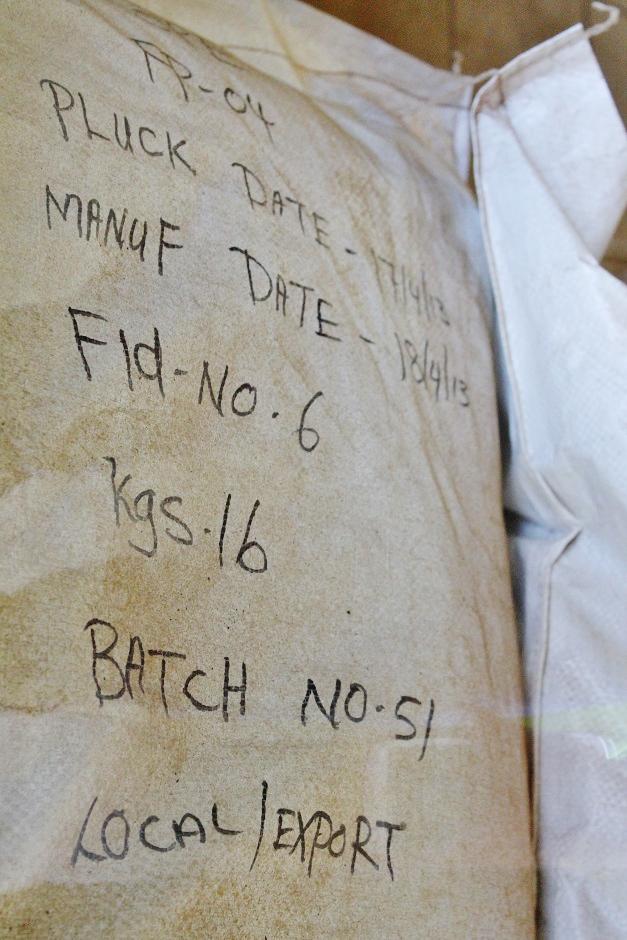 PP-04
PLUCK DATE - 17/4/13
MANUF DATE - 18/4/13
Fld-No. 6
Kgs.16
BATCH NO.51
LOCAL/EXPORT